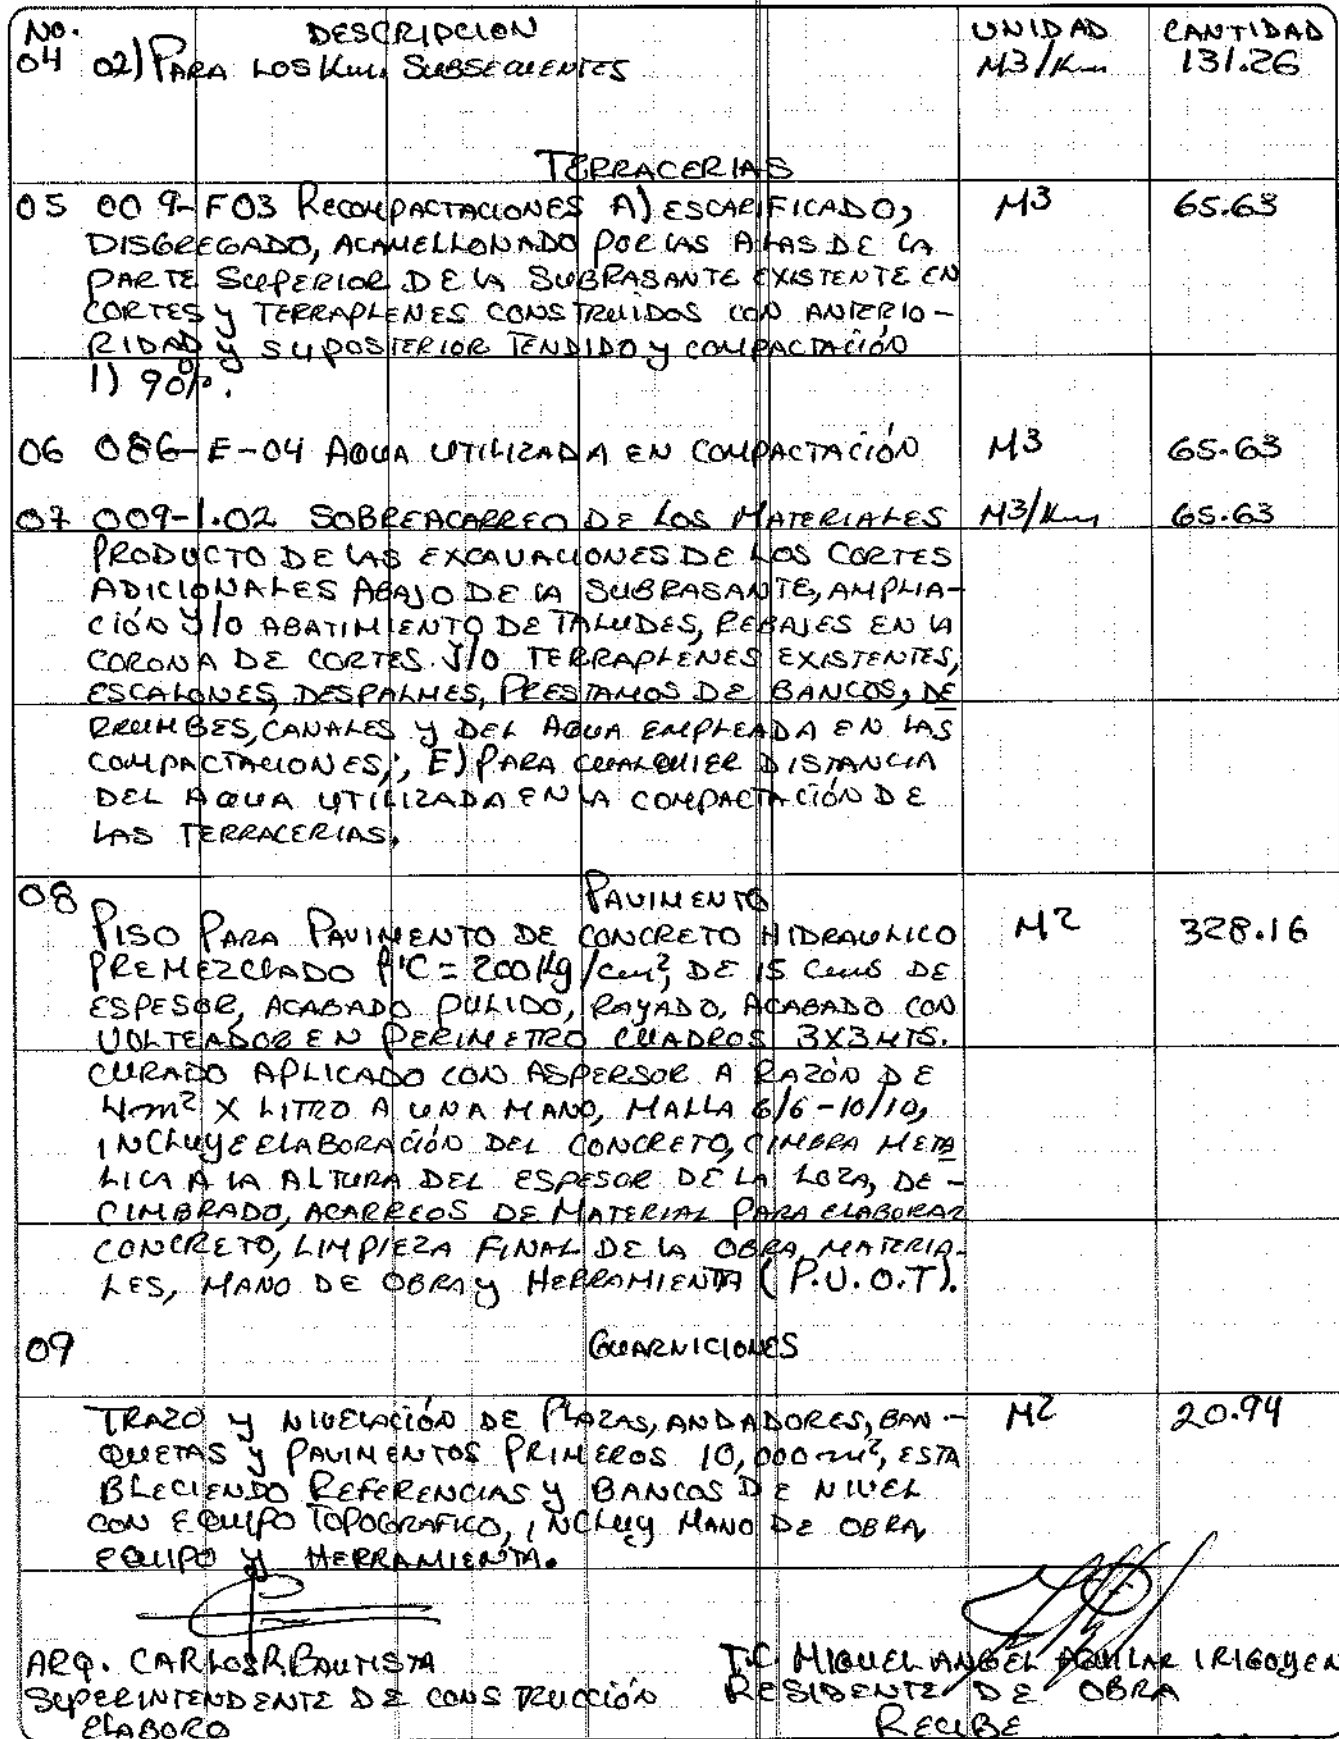 No. DESCRIPCION UNIDAD CANTIDAD
04 02) PARA LOS Km. SUBSECUENTES M3/Km 131.26
TERRACERIAS
05 009-F03 RECOMPACTACIONES A) ESCARIFICADO, M3 65.63
DISGREGADO, ACAMELLONADO POR LAS ALAS DE LA
PARTE SUPERIOR DE LA SUBRASANTE EXISTENTE EN
CORTES Y TERRAPLENES CONSTRUIDOS CON ANTERIO-
RIDAD Y SU POSTERIOR TENDIDO Y COMPACTACIÓN
1) 90%.
06 086-E-04 AGUA UTILIZADA EN COMPACTACIÓN M3 65.63
07 009-1.02 SOBREACARREO DE LOS MATERIALES M3/Km 65.63
PRODUCTO DE LAS EXCAVACIONES DE LOS CORTES
ADICIONALES ABAJO DE LA SUBRASANTE, AMPLIA-
CIÓN Y/O ABATIMIENTO DE TALUDES, REBAJES EN LA
CORONA DE CORTES Y/O TERRAPLENES EXISTENTES,
ESCALONES, DESPALMES, PRESTAMOS DE BANCOS, DE
RRUMBES, CANALES Y DEL AGUA EMPLEADA EN LAS
COMPACTACIONES;, E) PARA CUALQUIER DISTANCIA
DEL AGUA UTILIZADA EN LA COMPACTACIÓN DE
LAS TERRACERIAS.
08 PAVIMENTO
PISO PARA PAVIMENTO DE CONCRETO HIDRAULICO M2 328.16
PREMEZCLADO F'C=200 Kg/cm², DE 15 Cms DE
ESPESOR, ACABADO PULIDO, RAYADO, ACABADO CON
VOLTEADOR EN PERIMETRO CUADROS 3X3 MTS.
CURADO APLICADO CON ASPERSOR A RAZÓN DE
4m² X LITRO A UNA MANO, MALLA 6/6-10/10,
INCLUYE ELABORACIÓN DEL CONCRETO, CIMBRA META
LICA A LA ALTURA DEL ESPESOR DE LA LOZA, DE-
CIMBRADO, ACARREOS DE MATERIAL PARA ELABORAR
CONCRETO, LIMPIEZA FINAL DE LA OBRA, MATERIA-
LES, MANO DE OBRA Y HERRAMIENTA (P.U.O.T).
09 GUARNICIONES
TRAZO Y NIVELACIÓN DE PLAZAS, ANDADORES, BAN- M2 20.94
QUETAS Y PAVIMENTOS PRIMEROS 10,000 m², ESTA
BLECIENDO REFERENCIAS Y BANCOS DE NIVEL
CON EQUIPO TOPOGRAFICO, INCLUY MANO DE OBRA,
EQUIPO Y HERRAMIENTA.
ARQ. CARLOS R. BAUTISTA T.C. MIGUEL ANGEL AGUILAR IRIGOYEN
SUPERINTENDENTE DE CONSTRUCCIÓN RESIDENTE DE OBRA
ELABORO RECIBE